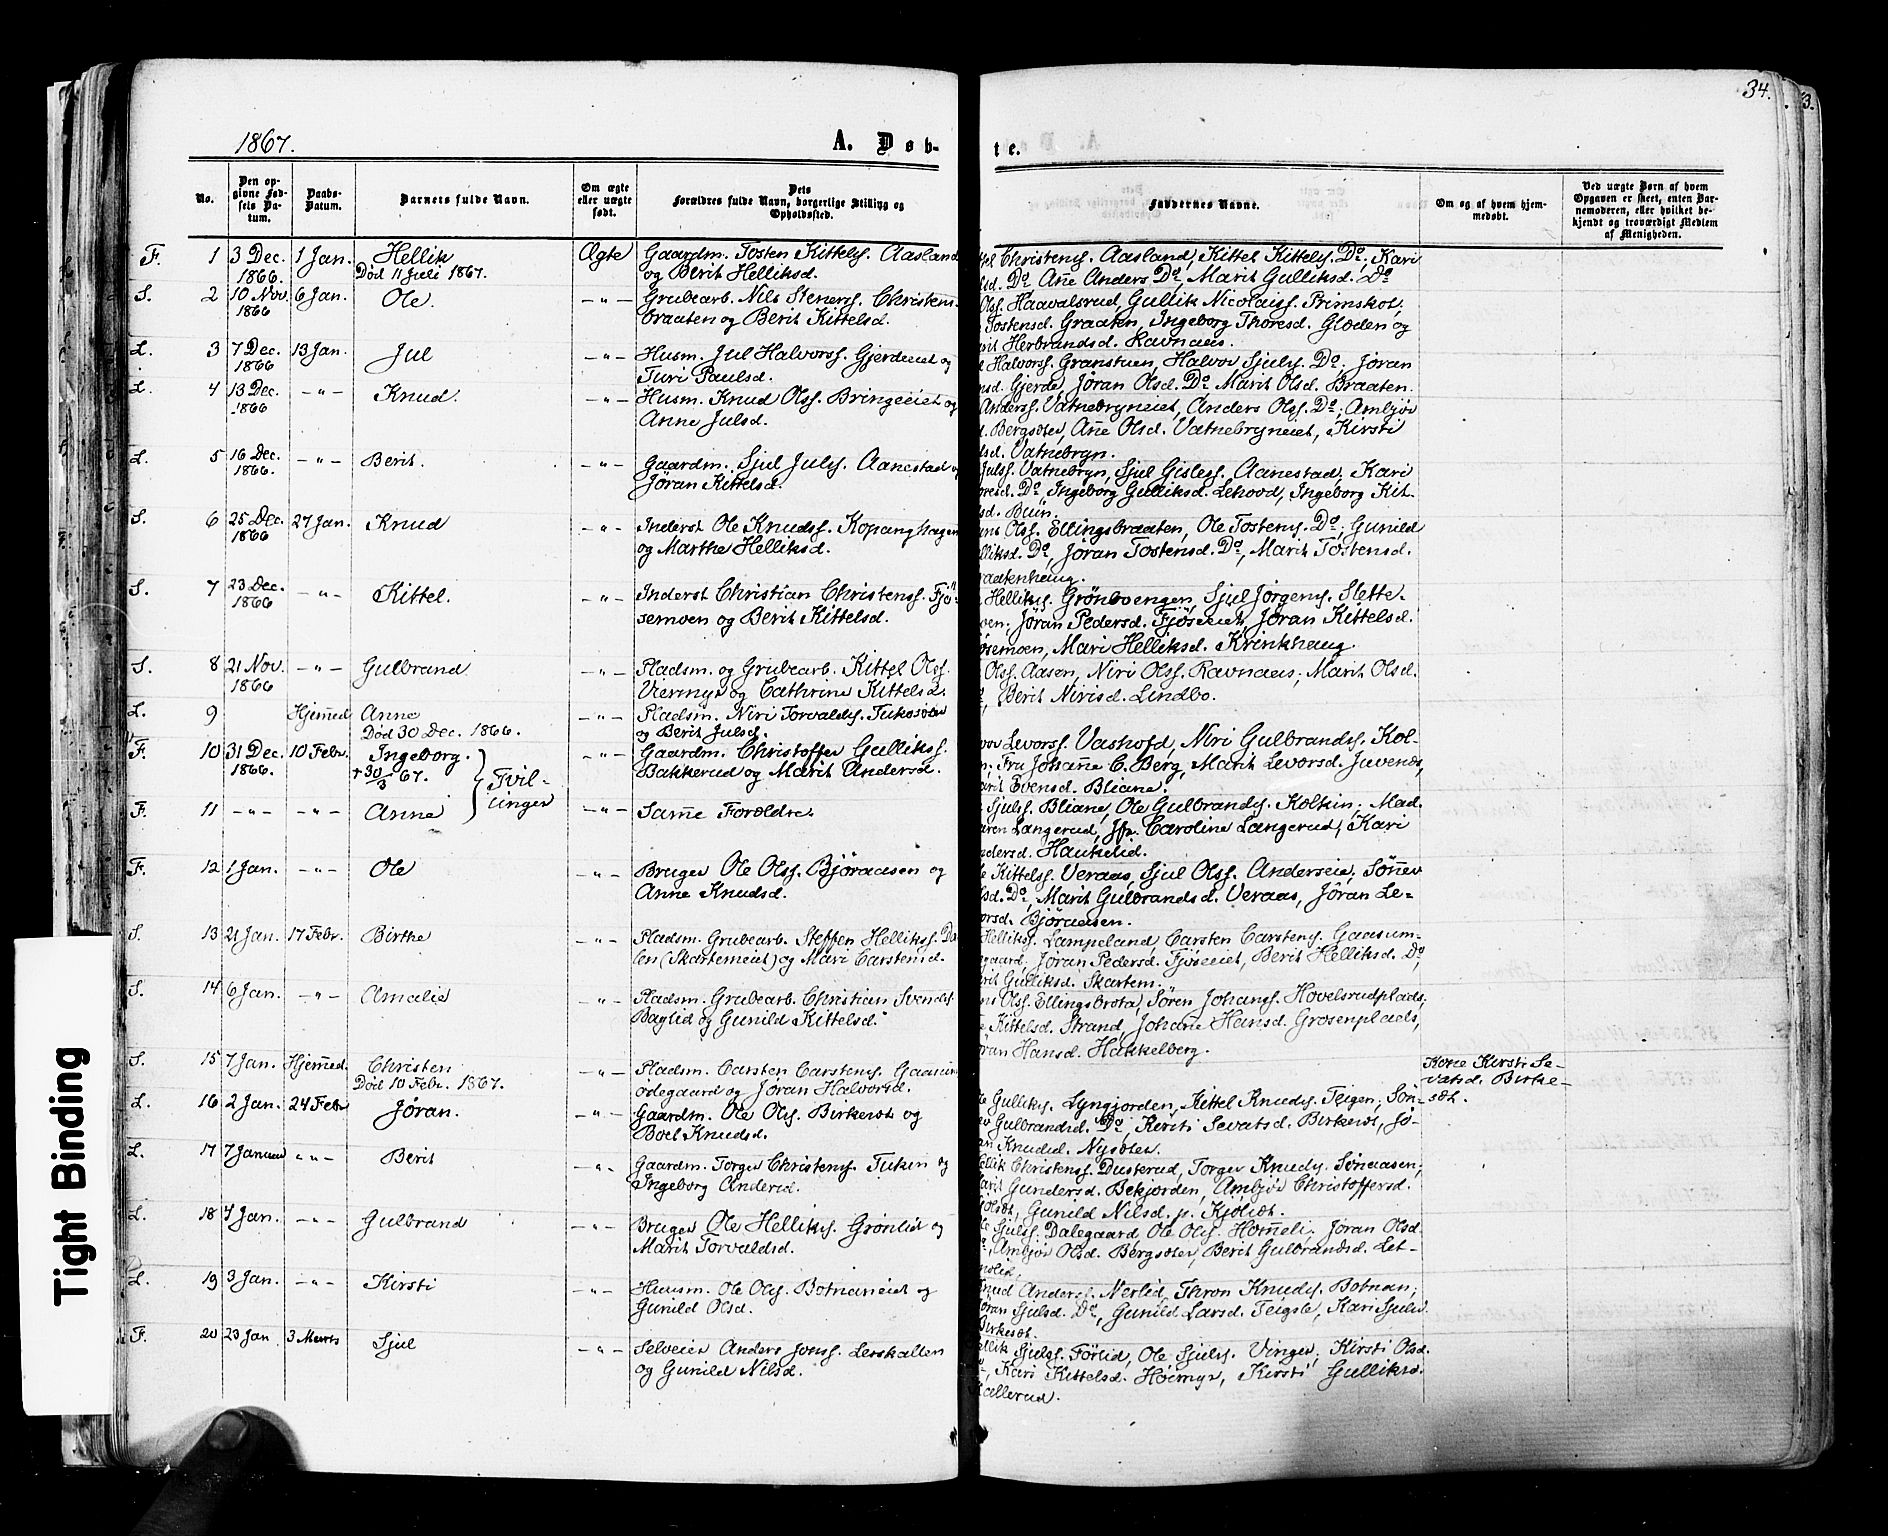 34.
3.
1867.
A. Døb-
te.
No.
Den op-
givne Fød-
sels Da-
tum.
Daabs-
Datum.
Barnets fulde Navn.
Om ægte
eller uægte
født.
Dets
Forældres fulde Navn, borgerlige Stilling og
Opholdssted.
Faddernes Navne.
Om og af hvem hjem-
medøbt.
Ved uægte Børn af hvem
Opgaven er skeet, enten Bar-
nemoderen, eller hvilket be-
kjendt og troværdigt Medlem
af Menigheden.
F. 1 3 Dec. 1866. 1 Jan. Hellik Ægte Gaardm. Tosten Kittels. Aasland
Død 11 Juli 1867. og Berit Helliksd.
Christens. Aasland, Kittel Kittels. Do; Kari
Do Ane Anders Do, Marit Gulliksd. Do
S. 2 10 Nov. 1866 6 Jan. Ole. -"- Grubearb. Nils Steners. Christens-
braaten og Berit Kittelsd.
Olss. Haavalsrud, Gullik Nicolaiss. Primskot,
Tostensd. Graaten, Ingeborg Thoresd. Gloden og
Herbrandsd. Ravnaas.
L. 3 7 Dec. 1866 13 Jan. Jul -"- Husm. Jul Halvorss. Gjerdeeiet og
Turi Paulsd.
Halvorss. Granstuen, Halvor Sjuls. Do; Jøran
Gjerde, Jøran Olsd. Do, Marit Olsd. Braaten.
L. 4 13 Dec. 1866 -"- Knud. -"- Husm. Knud Olss. Bringeeiet og
Anne Julsd.
Anderss. Vatnebryneiet, Anders Olss. Do; Ambjør
Bergsøter, Ane Olsd. Vatnebryneiet, Kirsti
Vatnebryn.
L. 5 16 Dec. 1866. -"- Berit. -"- Gaardm. Sjul Juls. Aanestad
Jøran Kittelsd.
Julss. Vatnebryn, Sjul Gisless. Aanestad; Kari
Do, Ingeborg Gulliksd. Lehovd, Ingeborg Kit-
Buin.
S. 6 25 Dec. 1866 27 Jan. Knud -"- Inderst Ole Knudss. Kopanghagen
og Marthe Helliksd.
Olss. Ellingsbraaten, Ole Tostens. Do; Gunild
Do, Jøran Tostensd. Do, Marit Tostensd.
S. 7 23 Dec. 1866 -"- Kittel. -"- Inderst Christian Christenss. Fjö-
semoen og Berit Kittelsd.
Helliks. Grönvengen, Sjul Jørgens. Slette-
Jøran Pedersd. Fjøseeiet, Jøran Kittelsd.
Mari Helliksd. Krinkhaug.
S. 8 21 Nov. 1866 -"- Gulbrand -"- Pladsm. og Grubearb. Kittel Olss.
Viermyr og Cathrine Kittelsd.
Olss. Aasen, Niri Olss. Ravnaas; Marit Olsd.
Berit Nirisd. Lindbo.
L. 9 Hjemmed Anne -"- Pladsm. Niri Torvalds. Tukosøter
Død 30 Dec. 1866. og Berit Julsd.
F. 10 31 Dec. 1866. 10 Febr. Ingeborg. -"- Gaardm. Christoffer Gullikss.
+ 30/3 67. Bakkerud og Marit Andersd.
Tvil-
linger
Levorss. Vashofd, Niri Gulbrands. Kol-
Fru Johanne C. Berg, Marit Levorsd. Juvenæs,
Evensd. Bliane.
F. 11 -"- -"- Anne -"- Samme Forældre.
Sjuls. Bliane, Ole Gulbrands. Kolkin; Mad.
Langerud, Jfr. Caroline Langerud, Kari
Haukelid.
F. 12 1 Jan. -"- Ole -"- Bruger Ole Olss. Björaasen og
Anne Knudsd.
Kittelss. Veraas, Sjul Olss. Anderseie, Sønnev
Do, Marit Gulbrandsd. Veraas, Jøran Le-
Björaasen.
S. 13 21 Jan. 17 Febr. Birthe -"- Pladsm. Grubearb. Steffen Hellikss. Da-
len (Skartemeiet) og Mari Carstensd.
Hellikss. Lampeland, Carsten Carstens. Gaasum-
Jøran Pedersd. Fjøseeiet, Berit Helliksd. Do,
Gulliksd. Skartem.
S. 14 6 Jan. -"- Amalie -"- Pladsm. Grubearb. Christian Svends.
Baglid og Gunild Kittelsd.
Olss. Ellingsbrota, Søren Johanss. Hovelsrudplads,
Kittelsd. Strand, Johanne Hansd. Grosenplads,
Hansd. Hakkelberg.
S. 15 7 Jan. Hjemmed. Christen -"- Pladsm. Carsten Carstens. Gaasum-
Død 10 Febr. 1867. ødegaard og Jøran Halvorsd.
Kone Kirsti Se-
vatsd. Birke-
sæt.
L. 16 2 Jan. 24 Febr. Jøran. -"- Gaardm. Ole Ols. Birkesøt og
Boel Knudsd.
Gulliks. Lyngjorden, Kittel Knuds. Teigen; Søn-
Gulbrandsd. Do, Kersti Sevatsd. Birkesøt, Jø-
Knudsd. Nysøter.
L. 17 7 Januar -"- Berit -"- Gaardm. Torger Christens. Tuken og
Ingeborg Andersd.
Christenss. Dusterud, Torger Knuds. Sønaasen;
Gundersd. Bekjorden, Ambjør Christoffersd.
Gunild Nilsd. p. Kjølsöt.
L. 18 4 Jan. -"- Gulbrand -"- Bruger Ole Helliks. Grönlid og
Marit Torvaldsd.
Sjulss. Dalegaard Ole Ols. Hommeli; Jøran Olsd.
Ambjør Olsd. Bergsøter, Berit Gulbrandsd. Let-
L. 19 3 Jan. -"- Kirsti -"- Husm. Ole Ols. Botnaneiet og
Gunild Olsd.
Anders. Nerlid, Thron Knuds. Botnan;
Sjulsd. Do, Gunild Larsd. Teigsle, Kari Sjulsd.
Birkesöt.
F. 20 23 Jan 3 Marts Sjul -"- Selveier Anders Jonss. Lerskallen
og Gunild Nilsd.
Sjulss. Förlid, Ole Sjuls. Vinger; Kirsti Olsd.
Kari Kittelsd. Hoimyr, Kirsti Gulliksd.
Tight Binding